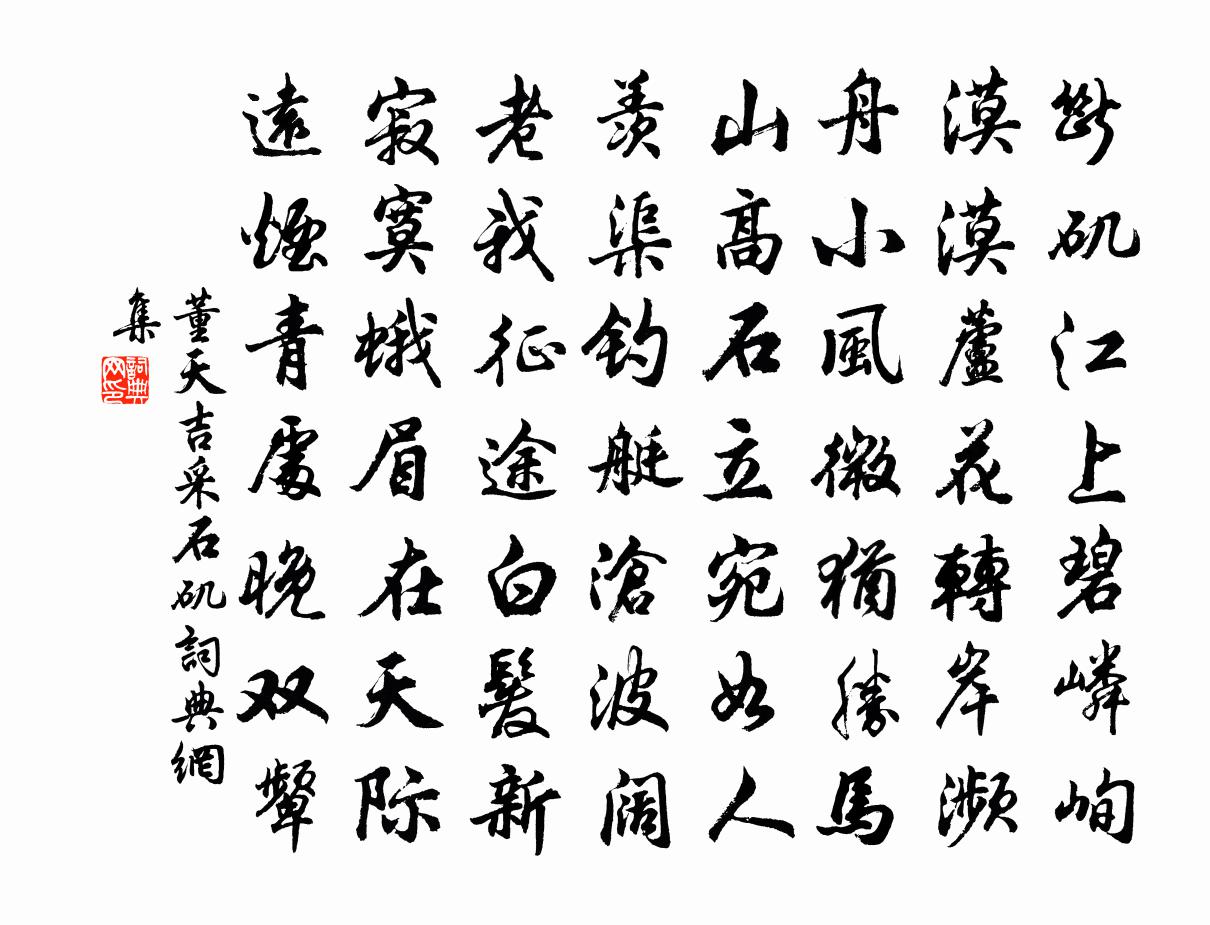 斷矶江上碧嶙峋
漠漠蘆花轉岸瀕
舟小風微猶勝馬
山高石立宛如人
羨渠釣艇滄波阔
老我征途白髮新
寂寞蛾眉在天际
遠煙青處晚双顰
董天吉采石矶詞典網
集
詞典
网印